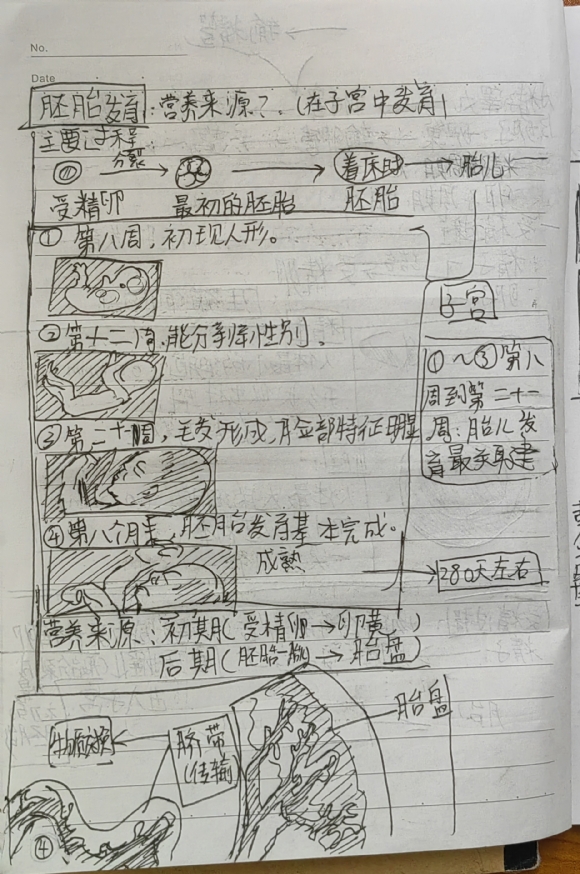 No.
Date
胚胎发育:营养来源?.(在子宫中发育)
主要过程
分裂
着床时 胎儿
受精卵 最初的胚胎 胚胎
①第八周,初现人形。
②第十二周,能分辨性别。
③第二十一周,毛发形成,脸部特征明显
④第八个月,胚胎发育基本完成。
子宫
①~③第八
周到第二十一
周:胎儿发
育最关键
成熟
280天左右
营养来源:初期(受精卵→卵黄)
后期(胚胎→胎儿→胎盘)
胎盘
物质交换
脐带
(传输)
④